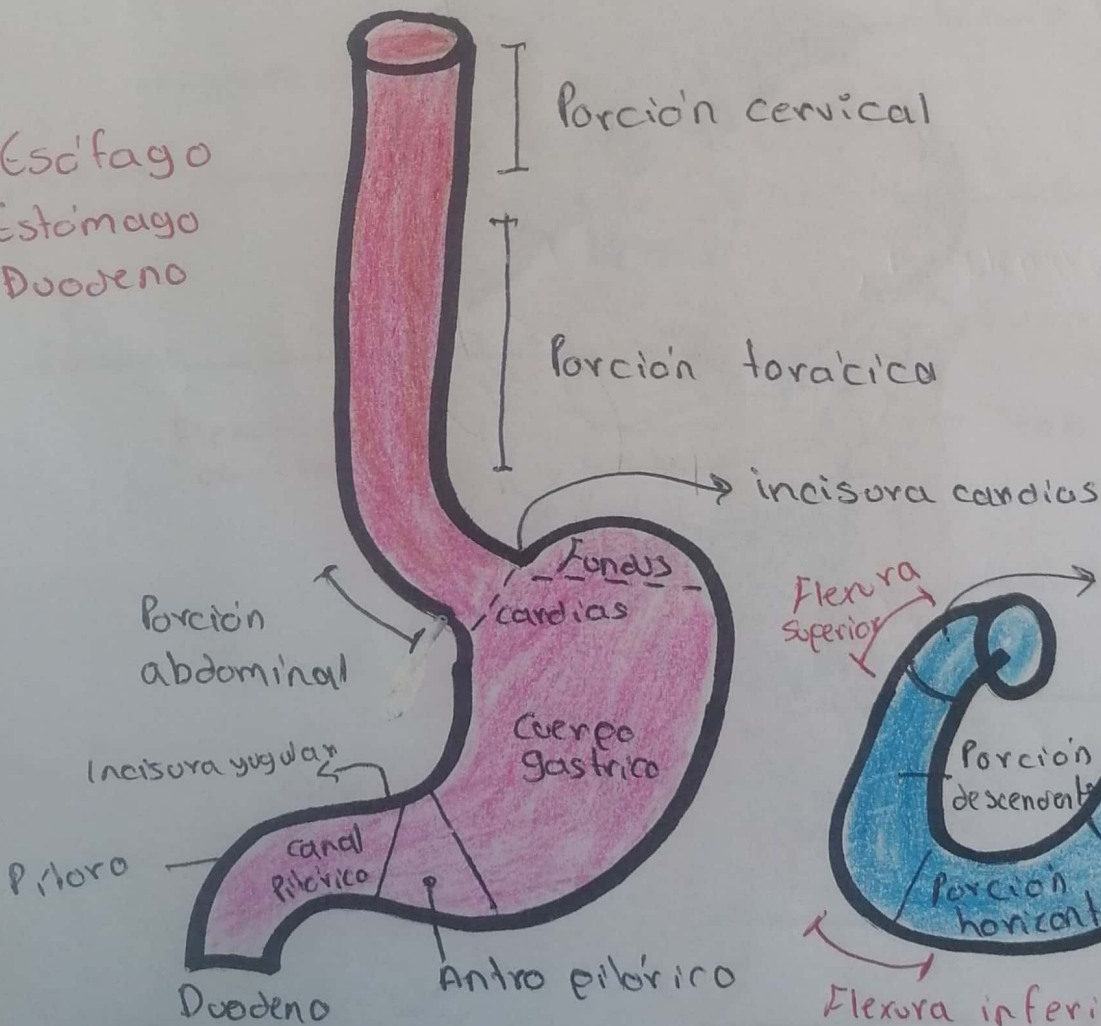 Esófago
Estómago
Duodeno
Porción cervical
Porción torácica
incisura cardias
Fundus
cardias
Porción
abdominal
Cuerpo
gastrico
Incisura yugular
canal
Pilórico
Píloro
Duodeno
Antro pilórico
Flexura
superior
Porción
descendent
Porción
horizont
Flexura inferi